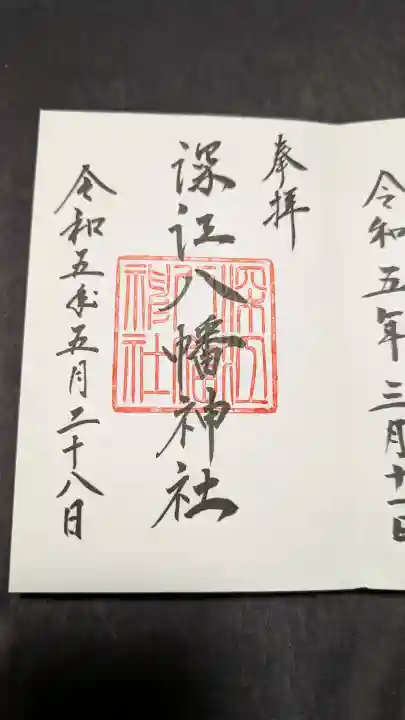 令和五年三月十一日
奉拝
深江八幡神社
令和五年五月二十八日
深江八幡神社